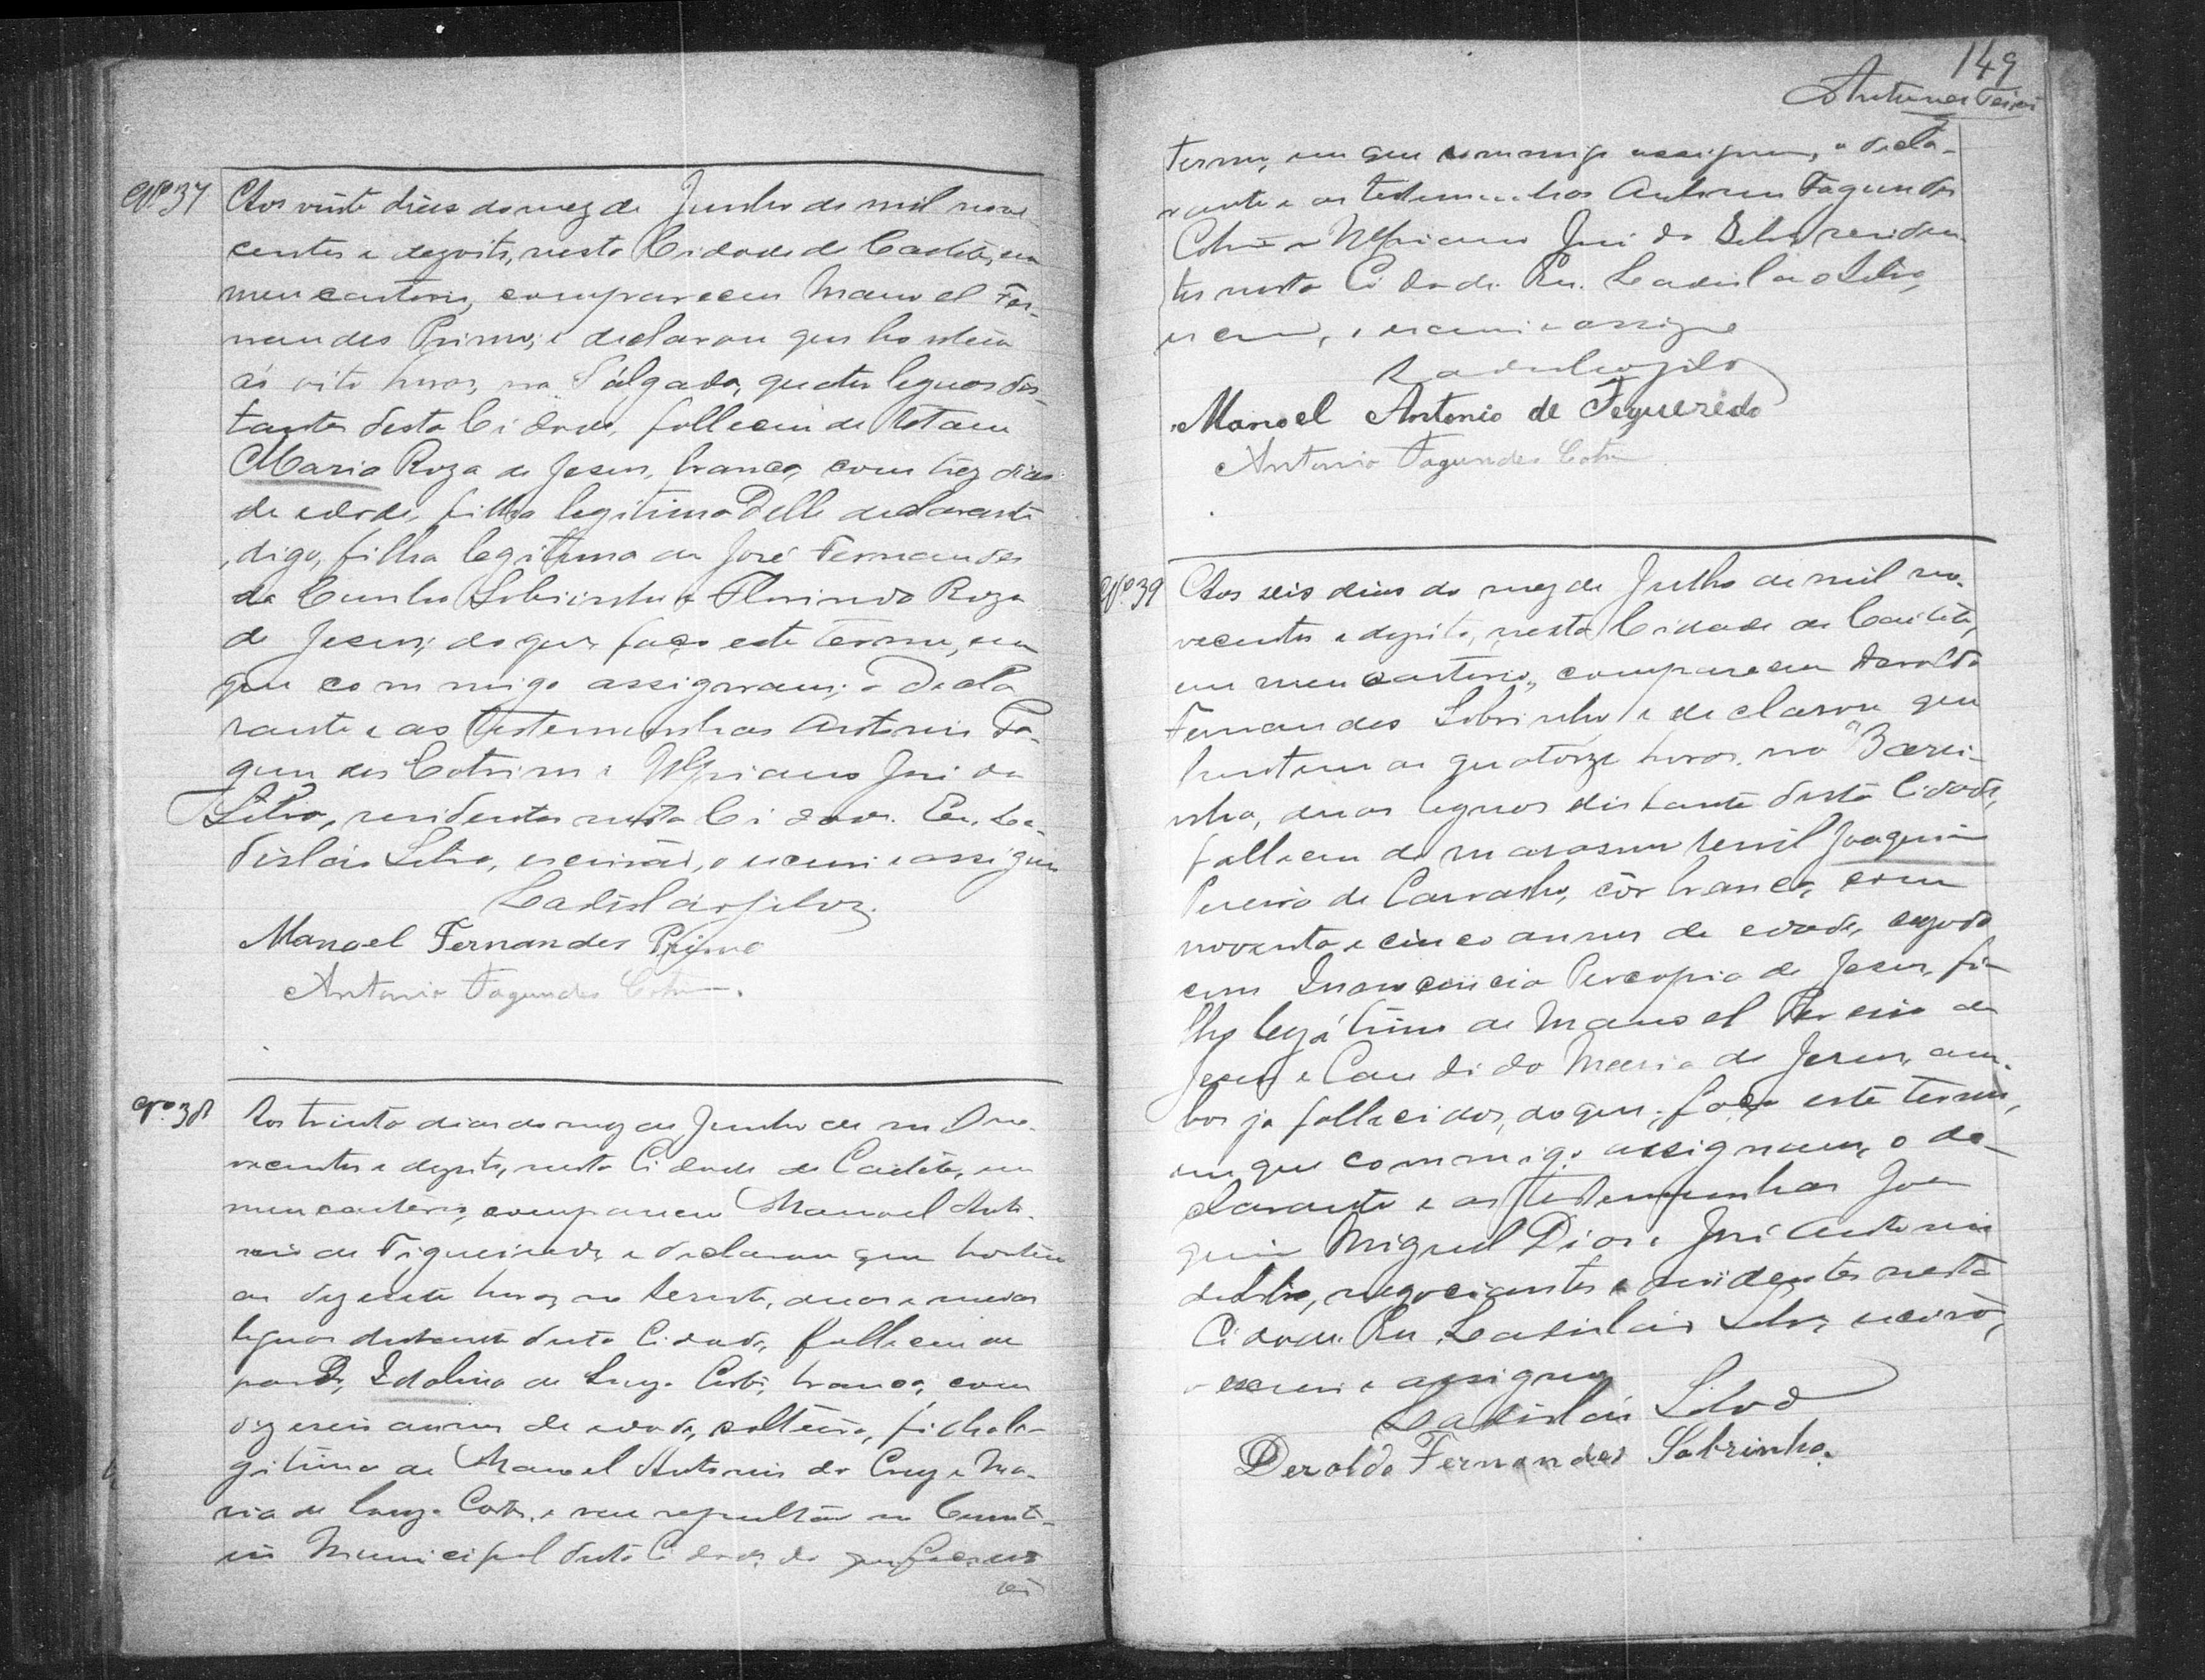 Nº 37 Aos vinte dias do mez de Junho de mil nove
centos e dezoito, nesta Cidade de Caetité, em
meu cartorio, compareceu Manoel Fer-
nandes Primo, e declarou que hontem
ás oito horas, no Salgado, quatro leguas dis-
tante desta Cidade, falleceu de tetano
Maria Roza de Jesus, branca, com trez dias
de edade, filha legitima delle declarante
, digo, filha legitima de José Fernandes
da Cunha Sobrinho e Florinda Roza
de Jesus; do que, faço este termo, em
que commigo assignam, o decla
rante e as testemunhas Antonio Fa-
gundes Cotrim e Ulpiano José da
Silva, residentes nesta Cidade. Eu, La-
disláo Silva, escrivão, o escrevi e assigno
Ladisláo Silva
Manoel Fernandes Primo
Antonio Fagundes Cotrim.
Nº 38 Aos trinta dias do mez de Junho de mil no-
vecentos e dezoito, nesta Cidade de Caetité, em
meu cartorio, compareceu Manoel Anto-
nio de Figueiredo e declarou que hontem
as dezesete horas no, duas e meia
leguas distante desta Cidade, falleceu de
parto, Idalina da Cruz, branca, com
dezeseis annos de edade, solteira, filha le-
gitima de Manoel Antonio da Cruz e Ma-
ria da Cruz, e seu sepultado no Cemite-
rio Municipal desta Cidade, do que faço este
149
Antunes
termo, em que commigo assignam, o decla-
rante e as testemunhas Antonio Fagundes
Cotrim e Ulpiano José da Silva, residen-
tes nesta Cidade. Eu, Ladisláo Silva,
escrivão, o escrevi e assigno
Ladisláo Silva
Manoel Antonio de Fegueredo
Antonio Fagundes Cotrim
Nº 39 Aos seis dias do mez de Julho de mil no-
vecentos e dezoito, nesta Cidade de Caetité,
em meu cartorio, compareceu Deraldo
Fernandes Sobrinho, e declarou que
hontem as quatorze horas, no
duas leguas distante desta Cidade,
falleceu de marasmo senil Joaquim
Pereira de Carvalho, côr branca, com
noventa e cinco annos de edade, cazado
com Innocencia Procopia de Jesus, fi-
lho legitimo de Manoel Pereira de
Jesus e Candida Maria de Jesus, am-
bos ja fallecidos, do que, faço este termo,
em que commigo assignam, o de-
clarante e as testemunhas Joa
quim Miguel Dias e José Antonio
da Silva, negociantes e residentes nesta
Cidade. Eu Ladisláo Silva, escrivão,
o escrevi e assigno
Ladisláo Silva
Deraldo Fernandes Sobrinho.